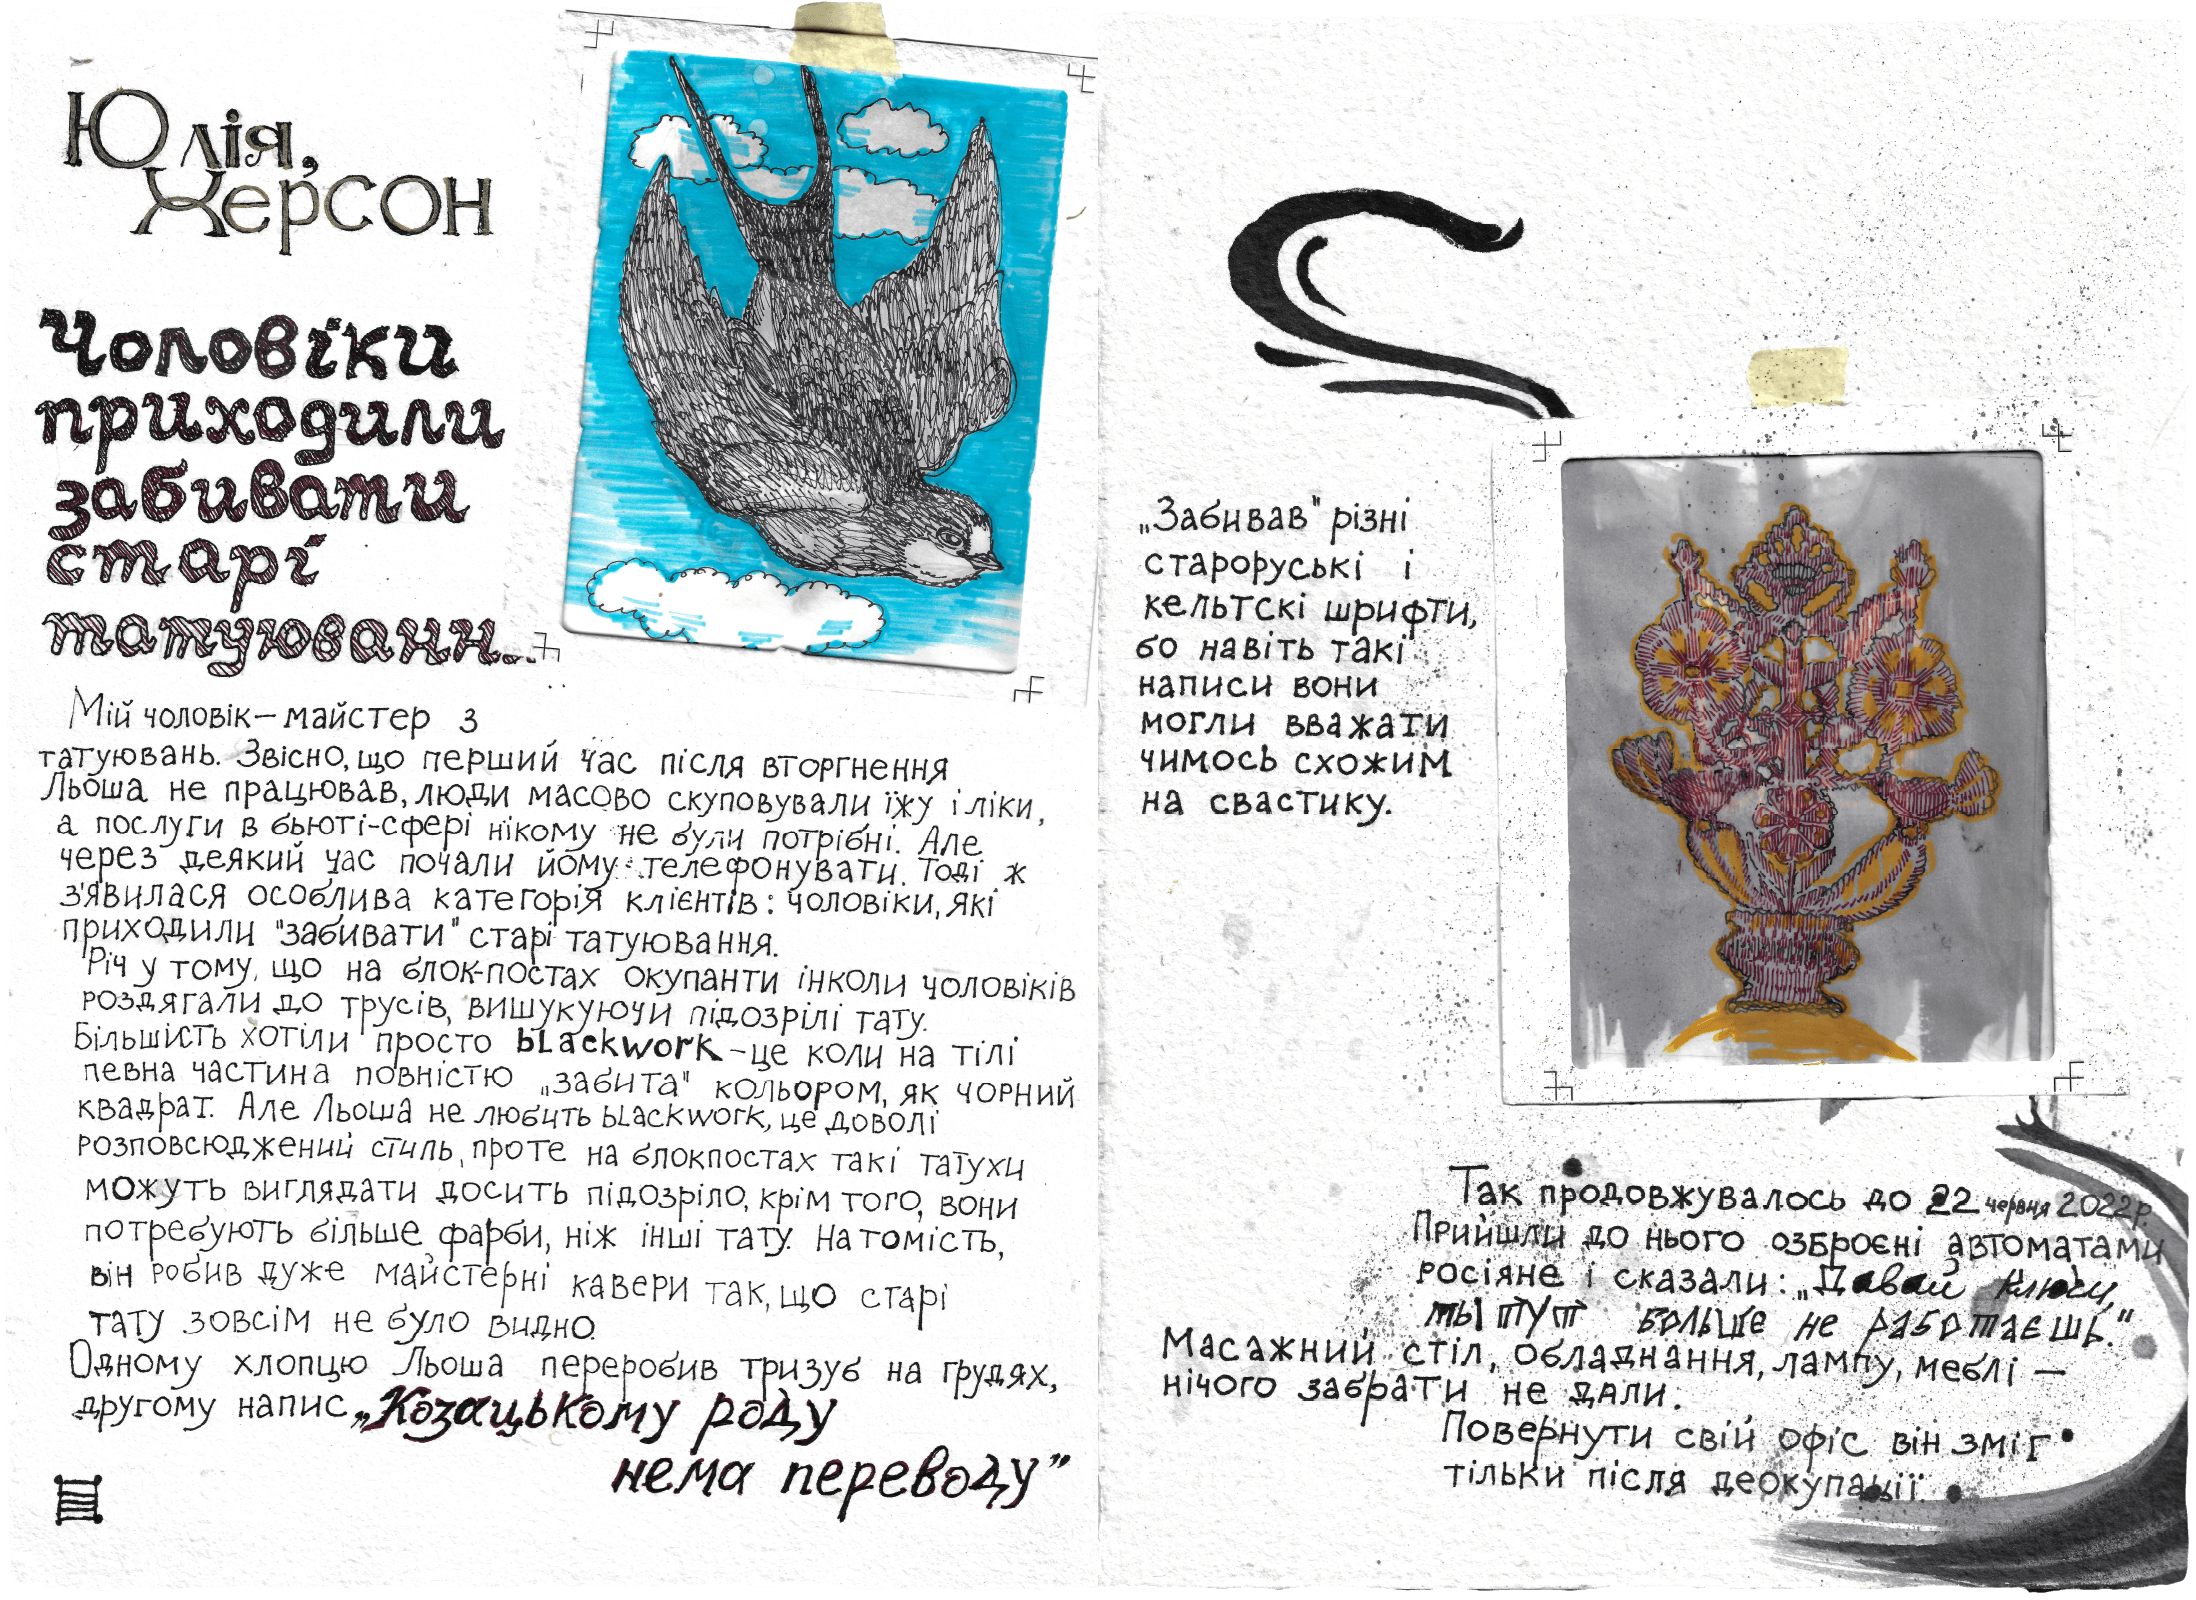 Юлія,
Херсон
Чоловіки
приходили
забивати
старі
татуюванн...
Мій чоловік – майстер з
татуювань. Звісно, що перший час після вторгнення
Льоша не працював, люди масово скуповували їжу і ліки,
а послуги в б'юті-сфері нікому не були потрібні. Але
через деякий час почали йому телефонувати. Тоді ж
з'явилася особлива категорія клієнтів: чоловіки, які
приходили "забивати" старі татуювання.
Річ у тому, що на блок-постах окупанти інколи чоловіків
роздягали до трусів, вишукуючи підозрілі тату.
Більшість хотіли просто blackwork – це коли на тілі
певна частина повністю „забита" кольором, як чорний
квадрат. Але Льоша не любить blackwork, це доволі
розповсюджений стиль, проте на блокпостах такі татухи
можуть виглядати досить підозріло, крім того, вони
потребують більше фарби, ніж інші тату. Натомість,
він робив дуже майстерні кавери так, що старі
тату зовсім не було видно.
Одному хлопцю Льоша переробив тризуб на грудях,
другому напис „Козацькому роду
нема переводу"
„Забивав" різні
староруські і
кельтскі шрифти,
бо навіть такі
написи вони
могли вважати
чимось схожим
на свастику.
Так продовжувалось до 22 червня 2022р.
Прийшли до нього озброєні автоматами
росіяне і сказали: „Давай ключи,
ты тут больше не работаєшь."
Масажний стіл, обладнання, лампу, меблі –
нічого забрати не дали.
Повернути свій офіс він зміг
тільки після деокупації.